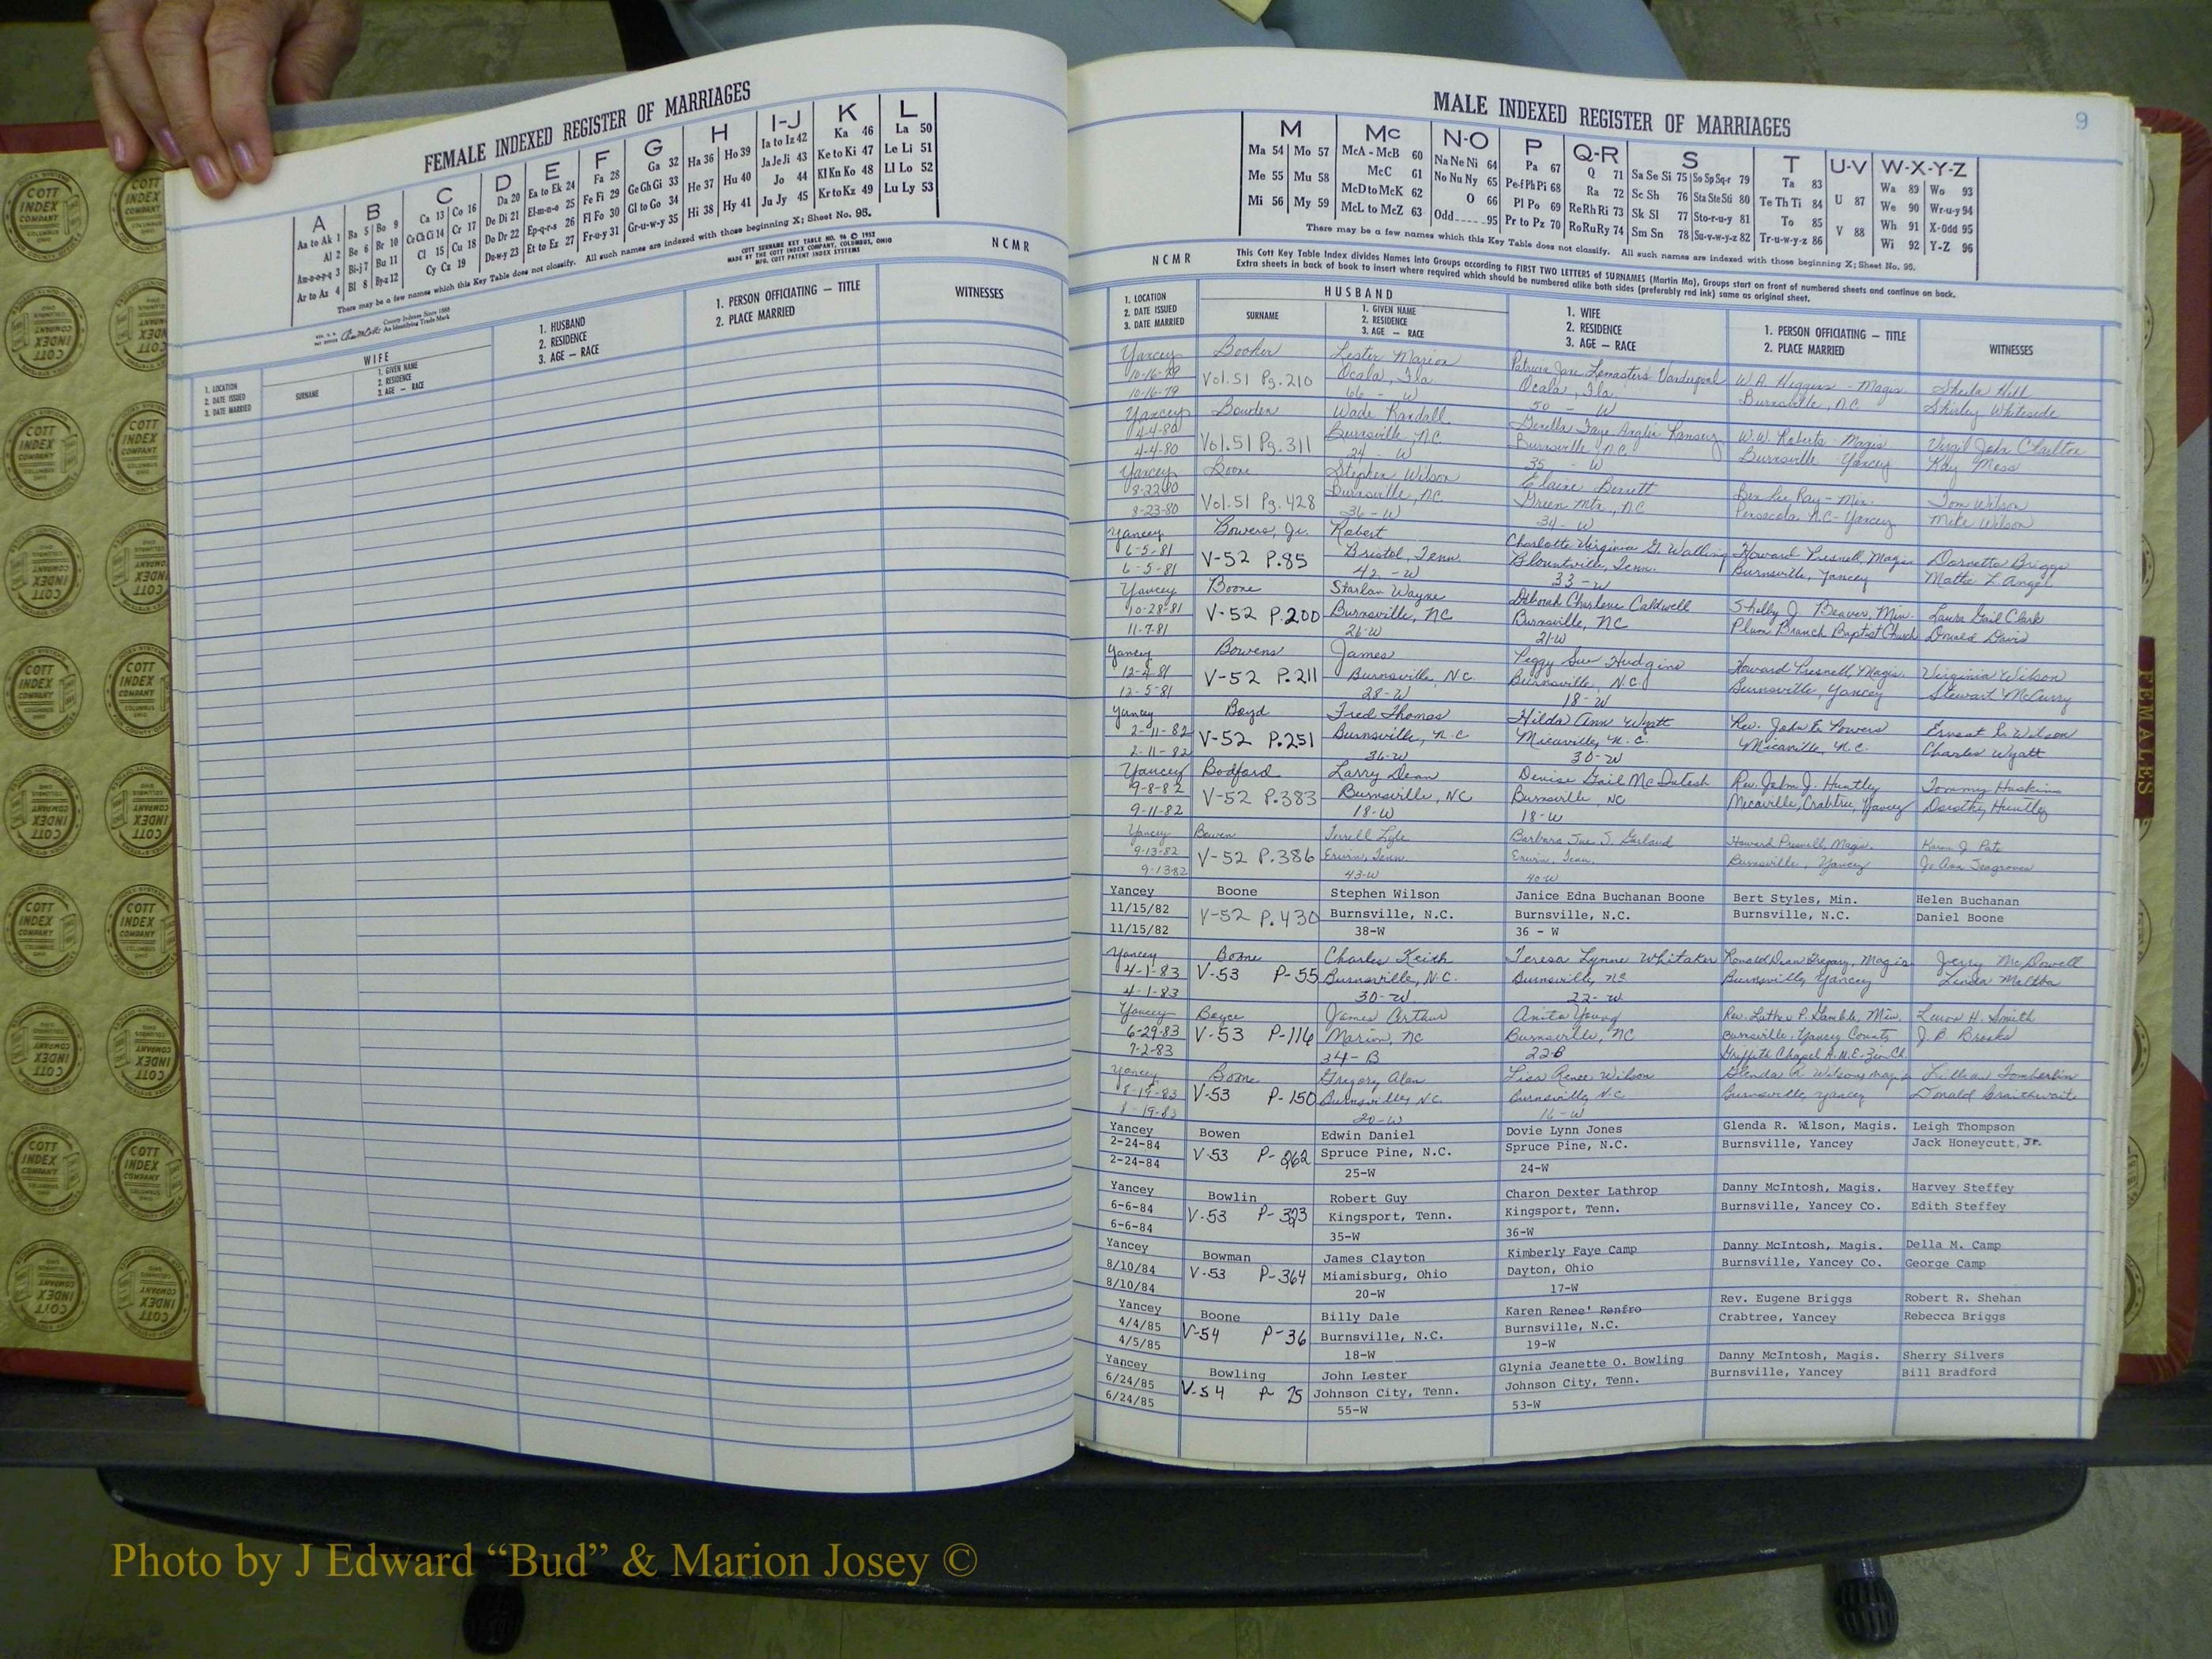 FEMALE INDEXED REGISTER OF MARRIAGES
A B C D E F G H I-J K L
Aa to Ak 1 Ba 5 Bo 9 Ca 13 Co 16 Da 20 Ea to Ek 24 Fa 28 Ga 32 Ha 36 Ho 39 Ia to Iz 42 Ka 46 La 50
Al 2 Be 6 Br 10 Ce Ch Ci 14 Cr 17 De Di 21 El-m-n-o 25 Fe Fi 29 Ge Gh Gi 33 He 37 Hu 40 Ja Je Ji 43 Ke to Ki 47 Le Li 51
Am-n-o-p-q 3 Bi-j 7 Bu 11 Cl 15 Cu 18 Do Dr 22 Ep-q-r-s 26 Fl Fo 30 Gl to Go 34 Hi 38 Hy 41 Jo 44 Kl Kn Ko 48 Ll Lo 52
Ar to Az 4 Bl 8 By-z 12 Cy Cz 19 Du-w-y 23 Et to Ez 27 Fr-u-y 31 Gr-u-w-y 35 Ju Jy 45 Kr to Kz 49 Lu Ly 53
There may be a few names which this Key Table does not classify. All such names are indexed with those beginning X; Sheet No. 96.
COTT SURNAME KEY TABLE NO. 96 © 1952
MADE BY THE COTT INDEX COMPANY, COLUMBUS, OHIO
MFG. COTT PATENT INDEX SYSTEMS
NCMR
County Indexes Since 1888
An Identifying Trade Mark
1. LOCATION
2. DATE ISSUED
3. DATE MARRIED
WIFE
SURNAME
1. GIVEN NAME
2. RESIDENCE
3. AGE — RACE
1. HUSBAND
2. RESIDENCE
3. AGE — RACE
1. PERSON OFFICIATING — TITLE
2. PLACE MARRIED
WITNESSES
MALE INDEXED REGISTER OF MARRIAGES
9
M Mc N-O P Q-R S T U-V W-X-Y-Z
Ma 54 Mo 57 McA - McB 60 Na Ne Ni 64 Pa 67 Q 71 Sa Se Si 75 So Sp Sq-r 79 Ta 83 U 87 Wa 89 Wo 93
Me 55 Mu 58 McC 61 No Nu Ny 65 Pe-f Ph Pi 68 Ra 72 Sc Sh 76 Sta Ste Sti 80 Te Th Ti 84 V 88 We 90 Wr-u-y 94
Mi 56 My 59 McD to McK 62 O 66 Pl Po 69 Re Rh Ri 73 Sk Sl 77 Sto-r-u-y 81 To 85 Wh 91 X-Odd 95
McL to McZ 63 Odd 95 Pr to Pz 70 Ro Ru Ry 74 Sm Sn 78 Su-v-w-y-z 82 Tr-u-w-y-z 86 Wi 92 Y-Z 96
There may be a few names which this Key Table does not classify. All such names are indexed with those beginning X; Sheet No. 96.
NCMR
This Cott Key Table Index divides Names into Groups according to FIRST TWO LETTERS of SURNAMES (Martin Ma), Groups start on front of numbered sheets and continue on back.
Extra sheets in back of book to insert where required which should be numbered alike both sides (preferably red ink) same as original sheet.
1. LOCATION
2. DATE ISSUED
3. DATE MARRIED
HUSBAND
SURNAME
1. GIVEN NAME
2. RESIDENCE
3. AGE — RACE
1. WIFE
2. RESIDENCE
3. AGE — RACE
1. PERSON OFFICIATING — TITLE
2. PLACE MARRIED
WITNESSES
Yancey Booker Lester Marion Patricia Jane Lemasters Vandergool W.A. Higgins - Magis. Sheila Hill
10-16-79 Vol. 51 Pg. 210 Ocala, Fla Ocala, Fla. Burnsville, N.C. Shirley Whiteside
10-16-79 66 - W 50 - W
Yancey Bowden Wade Randall Faye Anglin Ramsey W.W. Roberts - Magis Virgil John Charlton
4-4-80 Vol. 51 Pg. 311 Burnsville, N.C. Burnsville, N.C. Burnsville Yancey Kay Moss
4-4-80 34 - W 35 - W
Yancey Boone Stephen Wilson Elaine Bennett Ben Lee Ray - Min. Tom Wilson
8-22-80 Vol. 51 Pg. 428 Burnsville, N.C. Green Mtn., N.C. Pensacola N.C. - Yancey Mike Wilson
8-23-80 36 - W 34 - W
Yancey Bowers, Jr. Robert Charlotte Virginia G. Walling Howard Presnell, Magis. Darnetta Briggs
6-5-81 V-52 P.85 Bristol, Tenn. Blountville, Tenn. Burnsville, Yancey Mattie L. Angel
6-5-81 42 - W 33 - W
Yancey Boone Starlan Wayne Deborah Charlene Caldwell Shelby J. Beaver, Min. Laura Gail Clark
10-28-81 V-52 P.200 Burnsville, NC Burnsville, NC Plum Branch Baptist Church Donald Davis
11-7-81 26-W 21-W
Yancey Bowens James Peggy Sue Hudgins Howard Presnell, Magis. Virginia Wilson
12-4-81 V-52 P.211 Burnsville, N.C. Burnsville, N.C. Burnsville, Yancey Stewart McCurry
12-5-81 28-W 18-W
Yancey Boyd Fred Thomas Hilda Ann Wyatt Rev. John E. Powers Ernest G. Wilson
2-11-82 V-52 P.251 Burnsville, N.C Micaville, N.C. Micaville, N.C. Charles Wyatt
2-11-82 36-W 30-W
Yancey Bodford Larry Dean Denise Gail McIntosh Rev. John J. Huntley Tommy Huskins
9-8-82 V-52 P.383 Burnsville, NC Burnsville, NC Micaville, Crabtree, Yancey Dorothy Huntley
9-11-82 18-W 18-W
Yancey Bowen Terrell Lyle Barbara Sue S. Garland Howard Presnell, Magis. Karen J. Pate
9-13-82 V-52 P.386 Erwin, Tenn. Erwin, Tenn. Burnsville, Yancey Jo Ann Seagroves
9-13-82 43-W 40-W
Yancey Boone Stephen Wilson Janice Edna Buchanan Boone Bert Styles, Min. Helen Buchanan
11/15/82 V-52 P.430 Burnsville, N.C. Burnsville, N.C. Burnsville, N.C. Daniel Boone
11/15/82 38-W 36 - W
Yancey Boone Charles Keith Teresa Lynne Whitaker Ronald Dean Gregory, Magis Jerry McDowell
4-1-83 V-53 P-55 Burnsville, N.C. Burnsville, NC Burnsville, Yancey Linda Maltba
4-1-83 30-W 22-W
Yancey Boyce James Arthur Anita Young Rev. Luther P. Gamble, Min. Leron H. Smith
6-29-83 V-53 P-116 Marion, NC Burnsville, NC Burnsville, Yancey County J.B. Brooks
7-2-83 34-B 22-B Griffith Chapel A.M.E. Zion Ch.
Yancey Boone Gregory Alan Lisa Renee Wilson Glenda R. Wilson, Magis Lillian Tomberlin
8-19-83 V-53 P-150 Burnsville, N.C. Burnsville, N.C. Burnsville, Yancey Donald Braithwaite
8-19-83 20-W 16-W
Yancey Bowen Edwin Daniel Dovie Lynn Jones Glenda R. Wilson, Magis. Leigh Thompson
2-24-84 V-53 P-262 Spruce Pine, N.C. Spruce Pine, N.C. Burnsville, Yancey Jack Honeycutt, Jr.
2-24-84 25-W 24-W
Yancey Bowlin Robert Guy Charon Dexter Lathrop Danny McIntosh, Magis. Harvey Steffey
6-6-84 V-53 P-323 Kingsport, Tenn. Kingsport, Tenn. Burnsville, Yancey Co. Edith Steffey
6-6-84 35-W 36-W
Yancey Bowman James Clayton Kimberly Faye Camp Danny McIntosh, Magis. Della M. Camp
8/10/84 V-53 P-364 Miamisburg, Ohio Dayton, Ohio Burnsville, Yancey Co. George Camp
8/10/84 20-W 17-W
Yancey Boone Billy Dale Karen Renee' Renfro Rev. Eugene Briggs Robert R. Shehan
4/4/85 V-54 P-36 Burnsville, N.C. Burnsville, N.C. Crabtree, Yancey Rebecca Briggs
4/5/85 18-W 19-W
Yancey Bowling John Lester Glynia Jeanette O. Bowling Danny McIntosh, Magis. Sherry Silvers
6/24/85 V-54 P-75 Johnson City, Tenn. Johnson City, Tenn. Burnsville, Yancey Bill Bradford
6/24/85 55-W 53-W
FEMALES
COTT INDEX COMPANY
Photo by J Edward “Bud” & Marion Josey ©